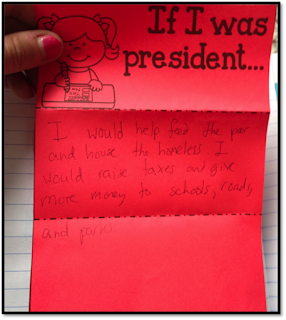 If I was
president...
I would help feed the poor
and house the homeless. I
would raise taxes and give
more money to schools, roads,
and parks.